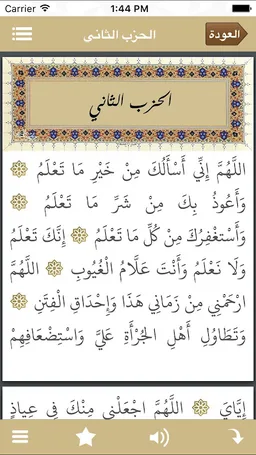 Carrier 1:44 PM
العودة
الحزب الثانى
الحزب الثاني
اللَّهُمَّ إِنِّي أَسْأَلُكَ مِنْ خَيْرِ مَا تَعْلَمُ
وَأَعُوذُ بِكَ مِنْ شَرِّ مَا تَعْلَمُ
وَأَسْتَغْفِرُكَ مِنْ كُلِّ مَا تَعْلَمُ إِنَّكَ تَعْلَمُ
وَلَا نَعْلَمُ وَأَنْتَ عَلَّامُ الْغُيُوبِ اللَّهُمَّ
ارْحَمْنِي مِنْ زَمَانِي هَذَا وَإِحْدَاقِ الْفِتَنِ
وَتَطَاوُلِ أَهْلِ الْجُرْأَةِ عَلَيَّ وَاسْتِضْعَافِهِمْ
إِيَّايَ اللَّهُمَّ اجْعَلْنِي مِنْكَ فِي عِيَاذٍ